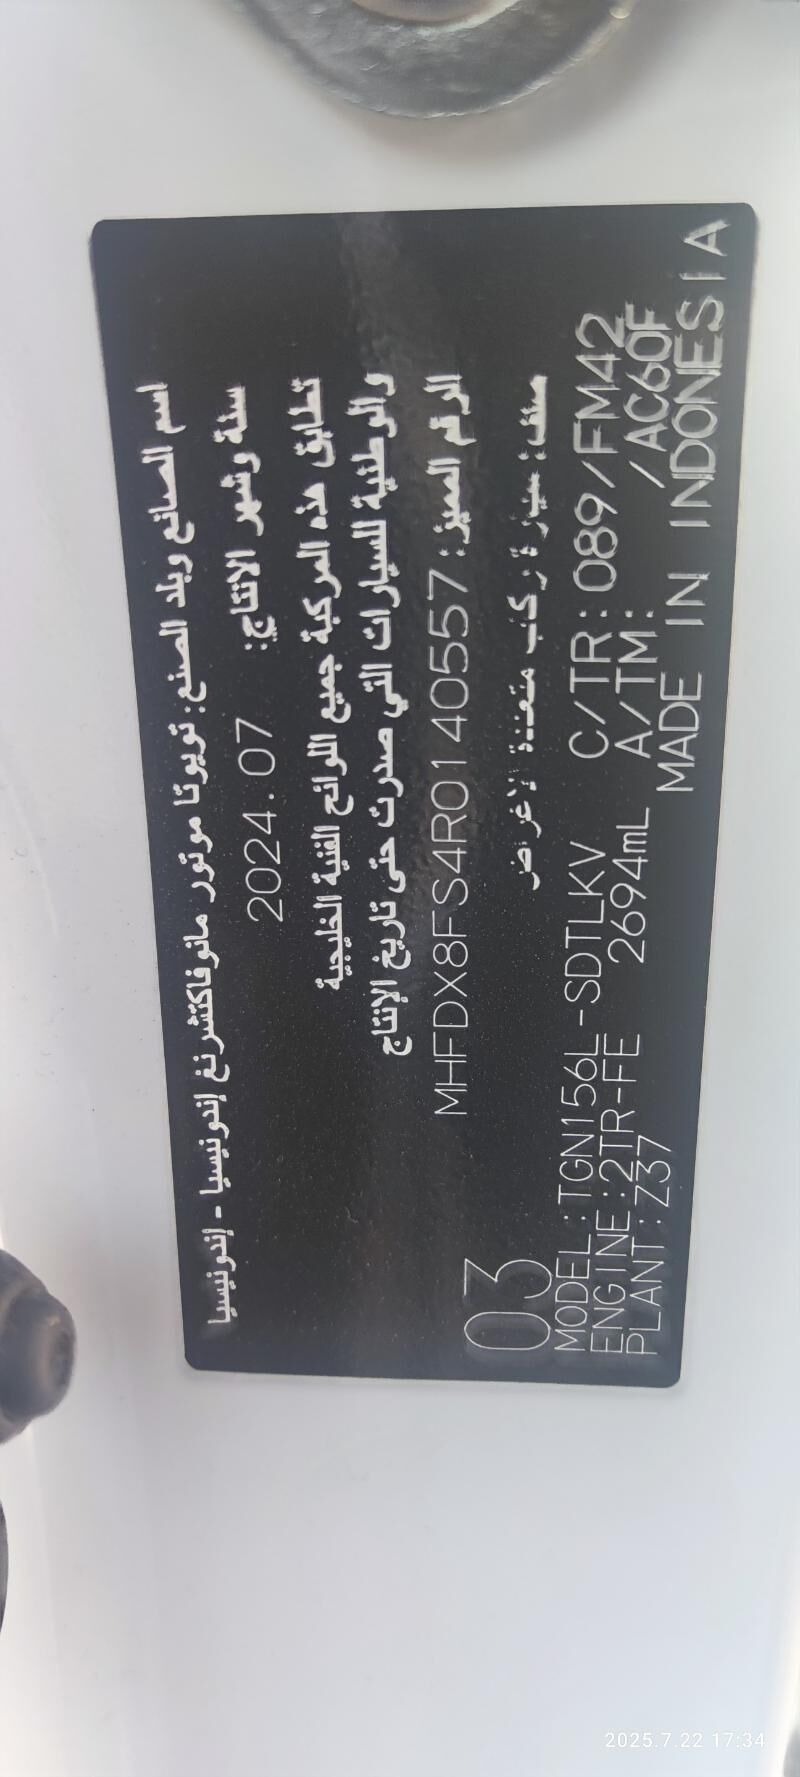 اسم الصانع وبلد الصنع: تويوتا موتور مانوفاكتشرنغ إندونيسيا - إندونيسيا
سنة وشهر الانتاج: 2024.07
تطابق هذه المركبة جميع اللوائح الفنية الخليجية
والوطنية للسيارات التي صدرت حتى تاريخ الإنتاج
الرقم المميز: MHFDX8FS4R0140557
صنف: سيارة ركاب متعددة الاغراض
03
MODEL:TGN156L-SDTLKV C/TR:089/FM42
ENGINE:2TR-FE 2694mL A/TM: /AC60F
PLANT:Z37 MADE IN INDONESIA
2025.7.22 17:34